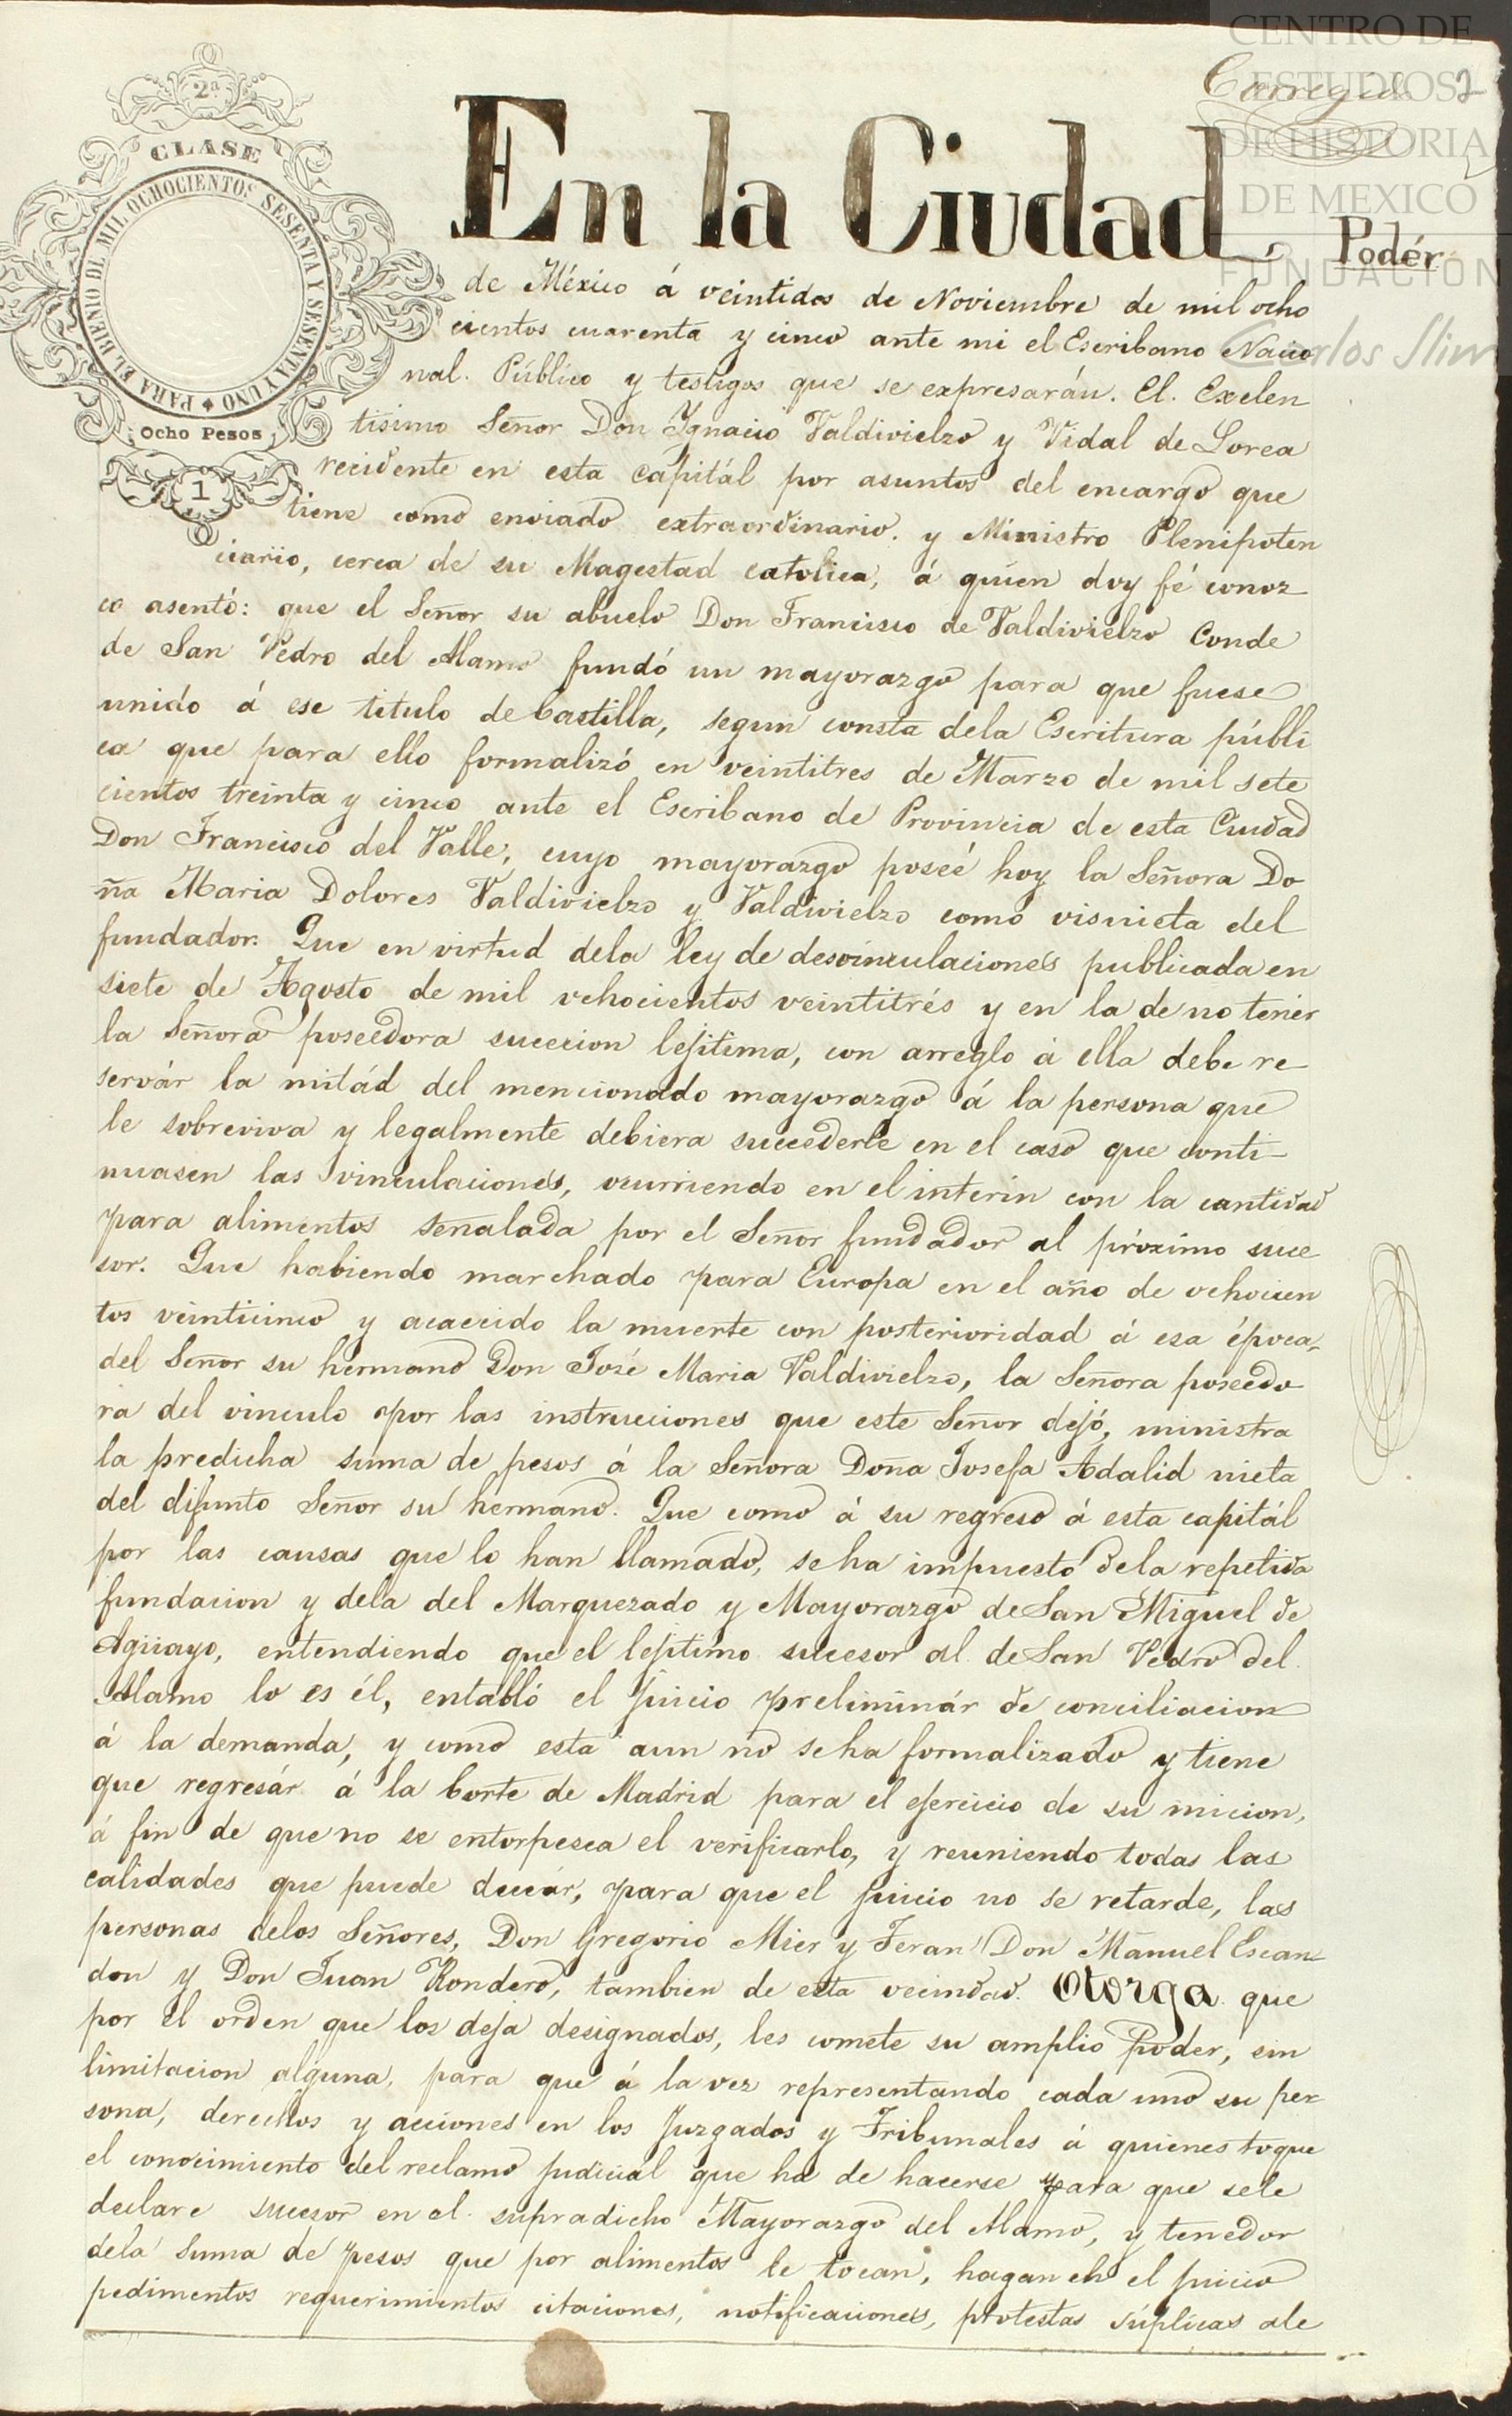 CENTRO DE
ESTUDIOS
DE HISTORIA
DE MEXICO
FUNDACION
Carlos Slim
Corregido 2
2ª
CLASE
PARA EL BIENIO DE MIL OCHOCIENTOS SESENTA Y SESENTA Y UNO
Ocho Pesos
1
Podér
En la Ciudad,
de México á veintidos de Noviembre de mil ocho
cientos cuarenta y cinco ante mi el Escribano Nacio
nal. Público y testigos que se expresarán. El. Exelen
tisimo Señor Don Ygnacio Valdivielzo y Vidal de Lorea
recidente en esta capitál por asuntos del encargo que
tiene como enviado extraordinario. y Ministro Plenipoten
ciario, cerca de su Magestad catolica, á quien doy fé conoz
co asentó: que el Señor su abuelo Don Francisco de Valdivielzo Conde
de San Pedro del Alamo fundó un mayorazgo para que fuese
unido á ese titulo de Castilla, segun consta dela Escritura públi
ca que para ello formalizó en veintitres de Marzo de mil sete
cientos treinta y cinco ante el Escribano de Provincia de esta Ciudad
Don Francisco del Valle, cuyo mayorazgo poseé hoy la Señora Do
ña Maria Dolores Valdivielzo y Valdivielzo como visnieta del
fundador. Que en virtud dela ley de desvinculaciones publicada en
siete de Agosto de mil ochocientos veintitrés y en la de no tenér
la Señora poseedora succcion lejitima, con arreglo á ella debe re
servár la mitád del mencionado mayorazgo á la persona que
le sobreviva y legalmente debiera succederle en el caso que conti
nuasen las vinculaciones, ocurriendo en el interin con la cantidad
para alimentos señalada por el Señor fundador al próximo suce
sor. Que habiendo marchado para Europa en el año de ochocien
tos veinticinco y acaecido la muerte con posterioridad á esa época,
del Señor su hermano Don José Maria Valdivielzo, la Señora poseedo
ra del vinculo por las instrucciones que este Señor dejó, ministra
la predicha suma de pesos á la Señora Doña Josefa Adalid nieta
del difunto Señor su hermano. Que como á su regreso á esta capitál
por las causas que lo han llamado, se ha impuesto dela repetida
fundacion y dela del Marquezado y Mayorazgo de San Miguel de
Agüayo, entendiendo que el lejitimo sucesor al de San Pedro del
Alamo lo es él, entabló el juicio preliminár de conciliacion
á la demanda, y como esta aun no se ha formalizado y tiene
que regresár á la Corte de Madrid para el ejercicio de su micion,
á fin de que no se entorpesca el verificarlo, y reuniendo todas las
calidades que puede deceár, para que el juicio no se retarde, las
personas delos Señores, Don Gregorio Mier y Teran Don Manuel Escan
don y Don Juan Rondero, tambien de esta vecindad. Otorga. que
por el orden que los deja designados, les comete su amplio poder, sin
limitacion alguna, para que á la vez representando cada uno su per
sona, derechos y acciones en los Juzgados y Tribunales á quienes toque
el conocimiento del reclamo judicial que ha de hacerse para que se le
declare sucesor en el supradicho Mayorazgo del Alamo, y tenedor
dela suma de pesos que por alimentos le tocan, hagan en el juicio
pedimentos requerimientos citaciones, notificaciones, protestas súplicas ale